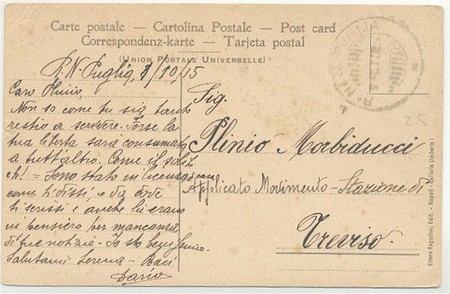 Carte postale — Cartolina Postale — Post card
Correspondenz-karte — Tarjeta postal
(UNION POSTALE UNIVERSELLE)
R. N. Puglia, 8/10/15
Caro Plinio,
Non so come tu sia tanto
restio a scrivere. Forse la
tua libertà sarà consumata
a tutt'altro. Come il solito
Sono stato in licenza
come ti dissi, a
ti scrissi e anche là erano
in pensiero per mancanza
di tue notizie. Io sto benissimo.
Salutami Serena - Baci
Dario
Sig.
Plinio Morbiducci
Applicato Movimento - Stazione di
Treviso.
25
Ettore Ragozino, Edit. - Napoli - Galleria Umberto I